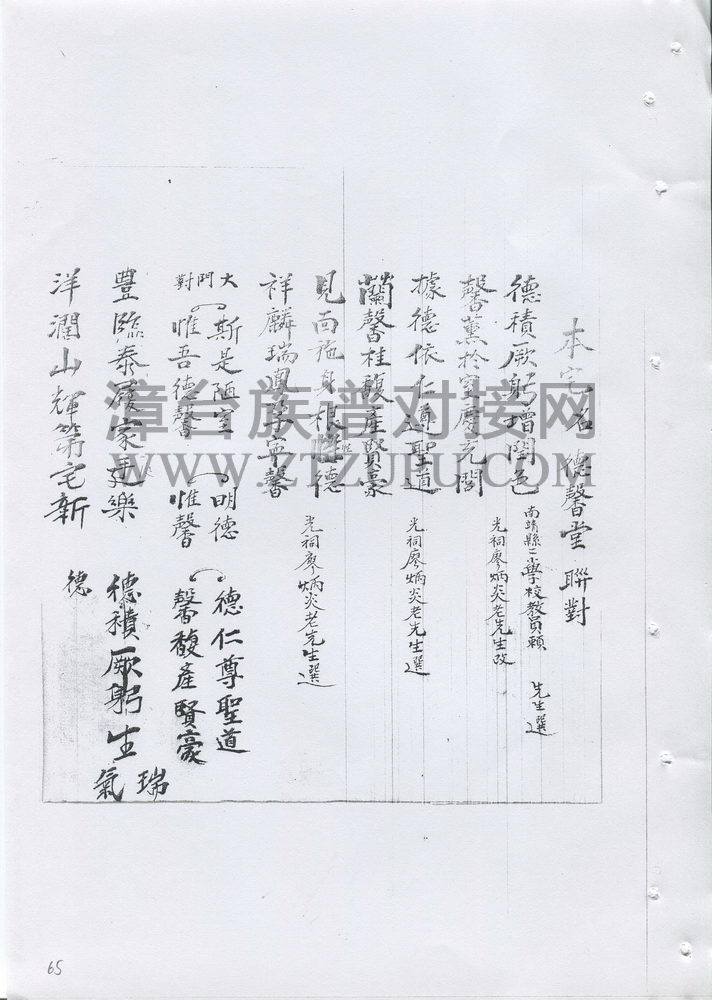 本宅名德馨堂聯對
德積厥躬增閏色 南靖縣二小學校教員賴 先生選
馨薰於室慶充閭 光祠廖炳炎老先生改
據德依仁遵聖道 光祠廖炳炎老先生選
蘭馨桂馥產賢豪
見面施身根 德 光祠廖炳炎老先生選
祥麟瑞鳳 寧馨
大門對
斯是陋室 明德 德仁尊聖道
惟吾德馨 惟馨 馨馥產賢豪
豐臨泰履家 樂 德積厥躬生瑞氣
洋潤山輝第宅新 德
漳台族谱对接网
WWW.ZTZUPU.COM
65